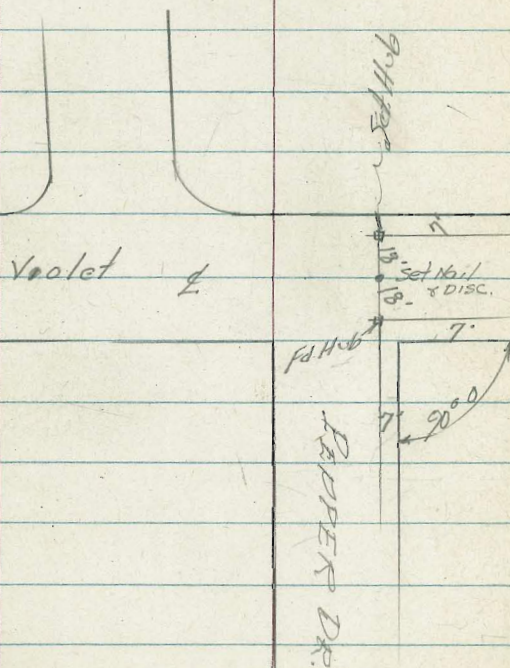 Fd Hub
7'
Violet ℄
18'
Set Nail
& DISC.
18'
Fd Hub
7'
7'
90°0
PEPPER DR.